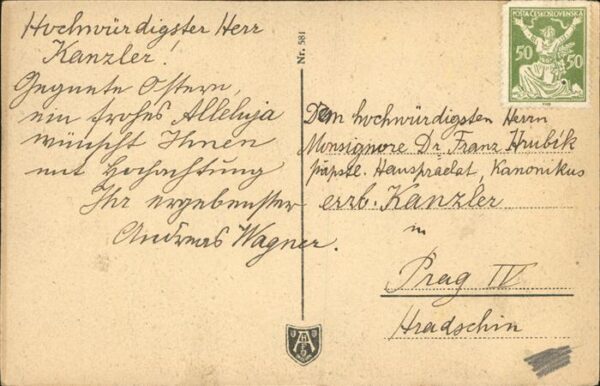 Hochwürdigster Herr
Kanzler!
Gegnete Ostern,
ein frohes Alleluja
wünscht Ihnen
mit Hochachtung
Ihr ergebenster
Andreas Wagner.
Nr. 581
POŠTA ČESKOSLOVENSKÁ
50 50
Dem hochwürdigsten Herrn
Monsignore Dr. Franz Hrubík
päpstl. Hauspraelat, Kanonikus
erzb. Kanzler
in
Prag IV
Hradschin